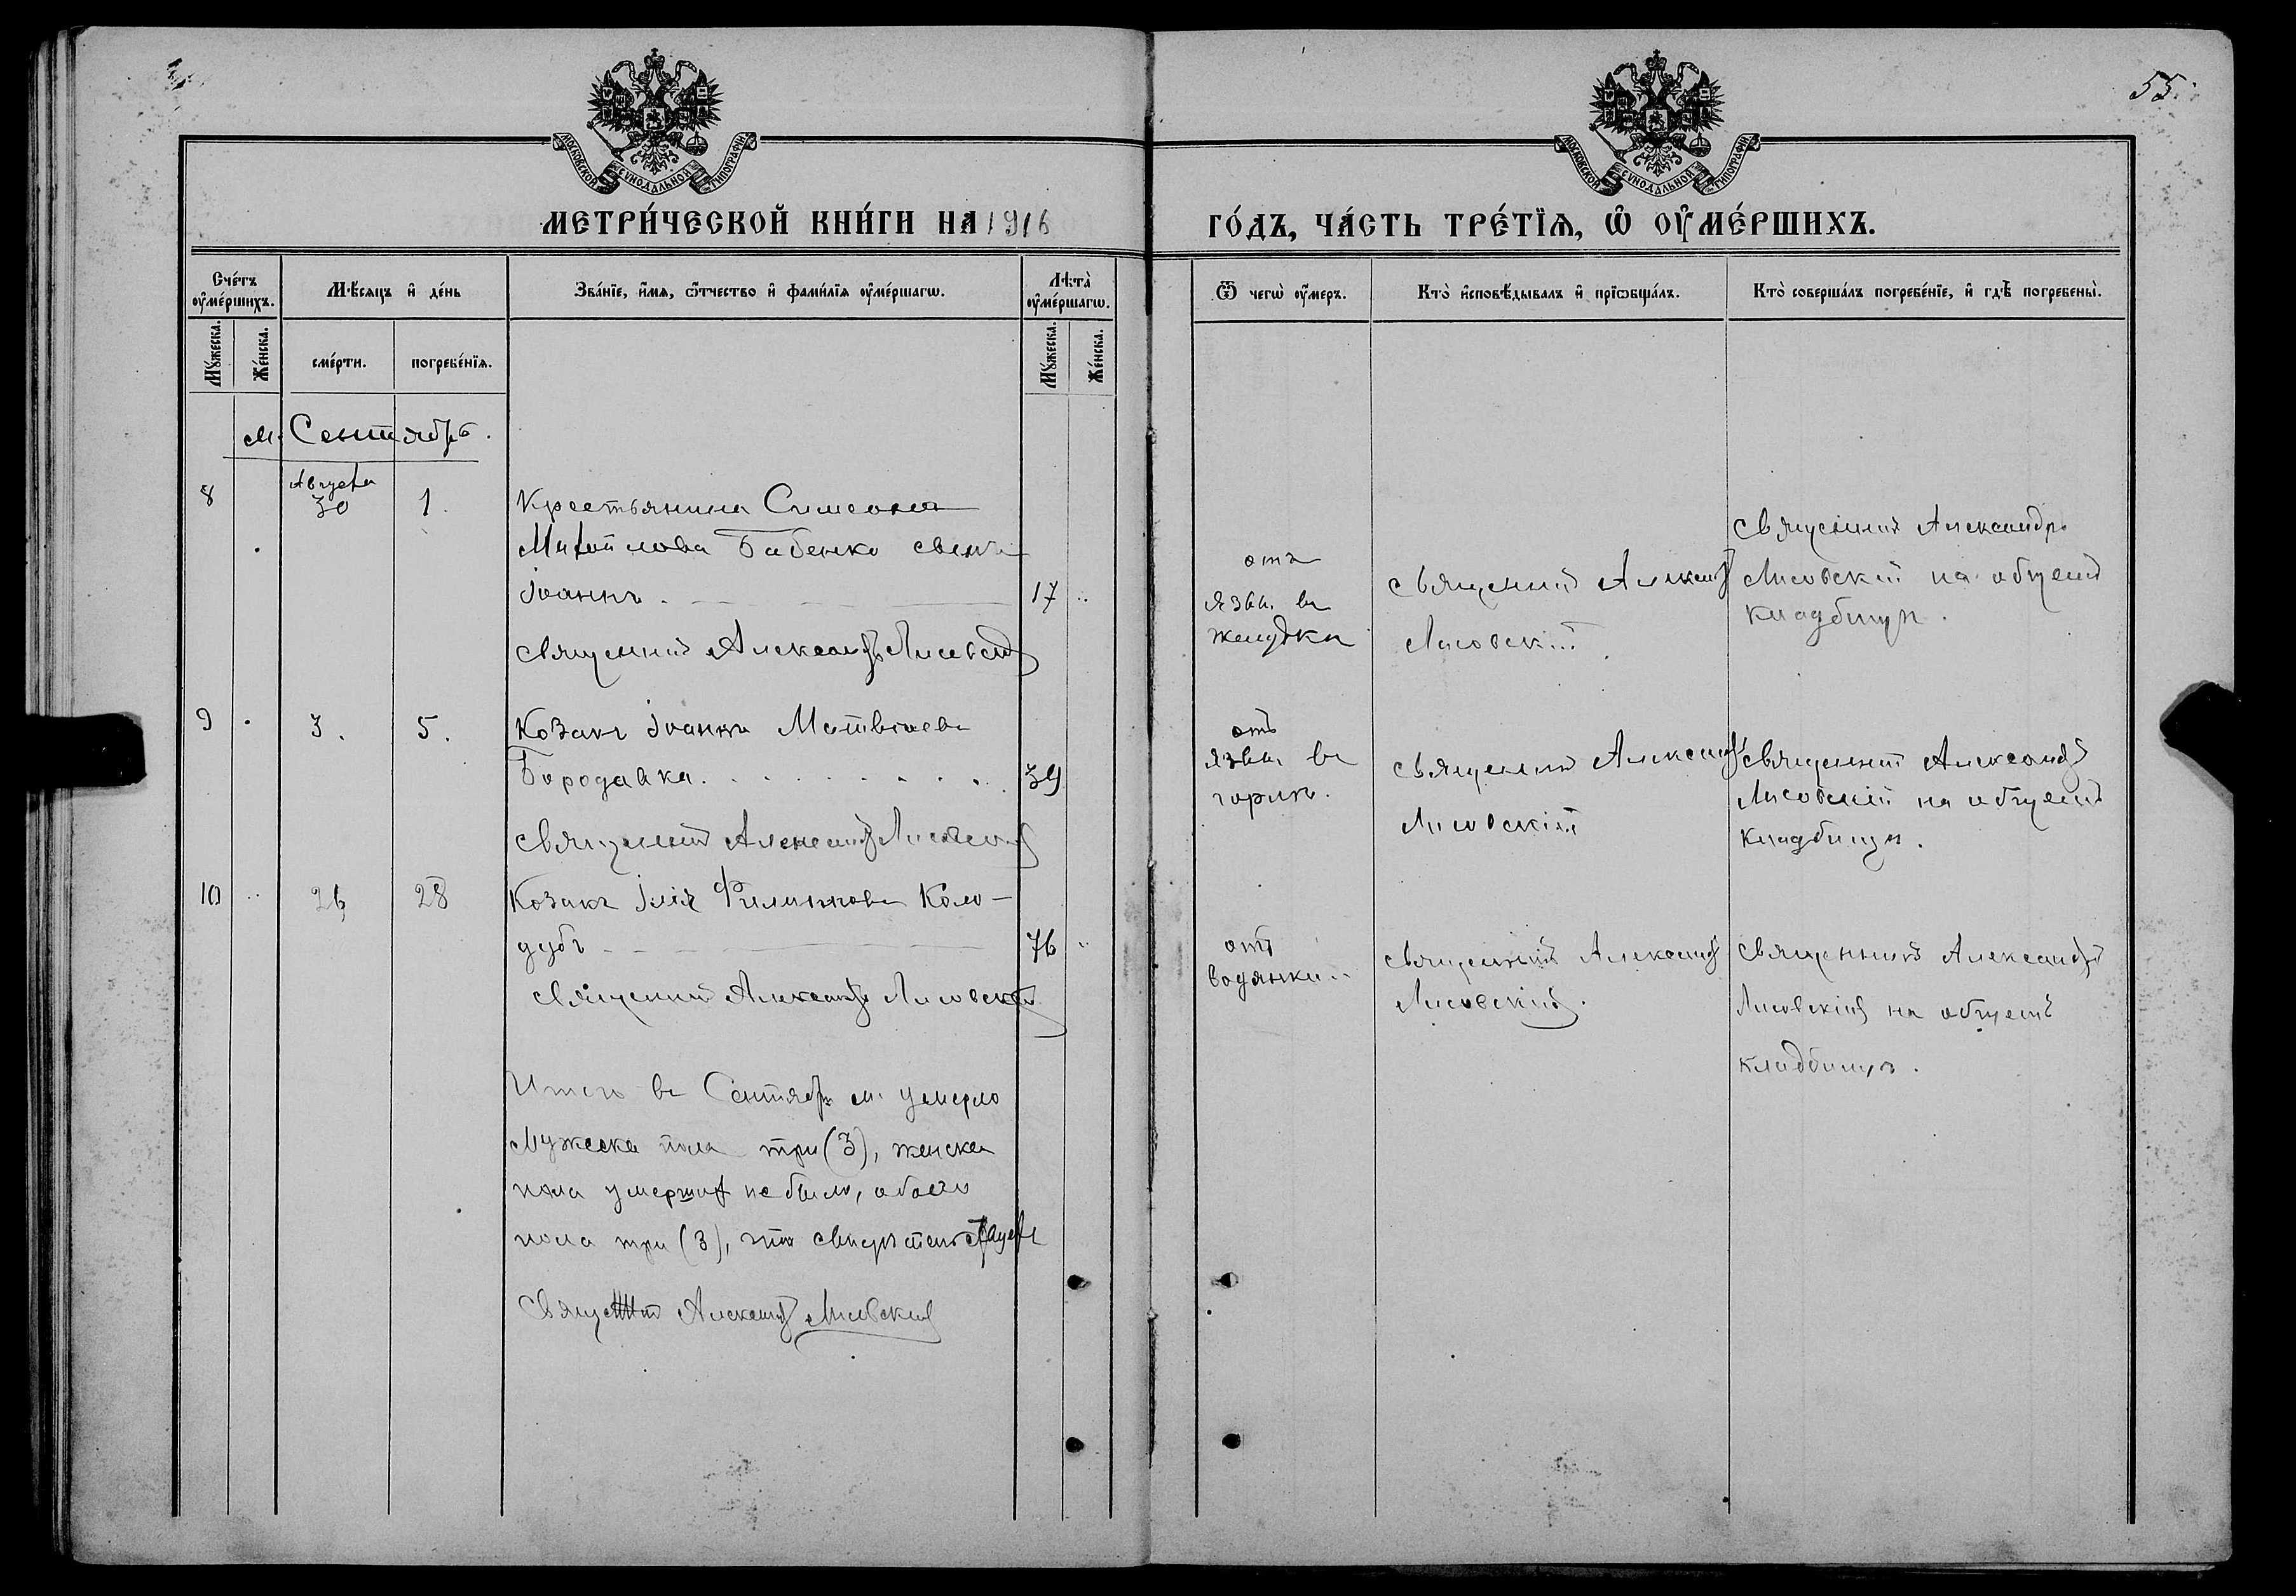 55
МОСКОВСКОЙ СѴНОДАЛЬНОЙ ТИПОГРАФІИ
МОСКОВСКОЙ СѴНОДАЛЬНОЙ ТИПОГРАФІИ
МЕТРИ́ЧЕСКОЙ КНИ́ГИ НА 1916 ГО́ДЪ, ЧА́СТЬ ТРЕ́ТЇѦ, Ѡ҆ ОУ҆МЕ́РШИХЪ.
Сче́тъ оу҆ме́ршихъ.
Мꙋ́жеска.
Же́нска.
Мѣ́сяцъ и҆ де́нь
сме́рти.
погребе́нїѧ.
Зва́нїе, и҆́мѧ, ѻ҆́тчество и҆ фами́лїѧ оу҆ме́ршагѡ.
Лѣ́та оу҆ме́ршагѡ.
Мꙋ́жеска.
Же́нска.
Ѿ чегѡ̀ оу҆́меръ.
Кто̀ и҆сповѣ́дывалъ и҆ прїѡбща́лъ.
Кто̀ соверша́лъ погребе́нїе, и҆ гдѣ̀ погребены̀.
м. Сентябрь.
8
Августа
30
1.
Крестьянина Симеона
Михайлова Бабенко сынъ
Іоаннъ
17
Священникъ Александръ Лисовскій
отъ
язвы въ
желудкѣ
Священникъ Александръ
Лисовскій.
Священникъ Александръ
Лисовскій на общемъ
кладбищѣ.
9
3.
5.
Козакъ Іоаннъ Матвіевъ
Бородавка.
39
Священникъ Александръ Лисовскій
отъ
язвы въ
горлѣ.
Священникъ Александръ
Лисовскій
Священникъ Александръ
Лисовскій на общемъ
кладбищѣ.
10
26
28
Козакъ Илія Филипповъ Коло-
дубъ
76
Священникъ Александръ Лисовскій
отъ
водянки
Священникъ Александръ
Лисовскій.
Священникъ Александръ
Лисовскій на общемъ
кладбищѣ.
Итого въ Сентябрѣ м. умерло
мужеска пола три (3), женска
пола умершихъ не было, обоего
пола три (3), что свидѣтельствуетъ
Священникъ Александръ Лисовскій